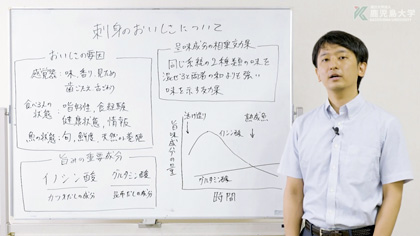 刺身のおいしさについて
おいしさの要因
感覚器：味、香り、見ため
歯ごたえ、舌ざわり
食べる人の状態：嗜好性、食経験
健康状態、情報
魚の状態：旬、鮮度、天然or養殖
旨みの重要成分
イノシン酸
カツオだしの成分
グルタミン酸
昆布だしの成分
呈味成分の相乗効果
同じ系統の2種類の味を
混ぜると両者の和よりも強い
味を示す効果
旨味成分の量
活け造り
熟成魚
イノシン酸
グルタミン酸
時間
鹿児島大学